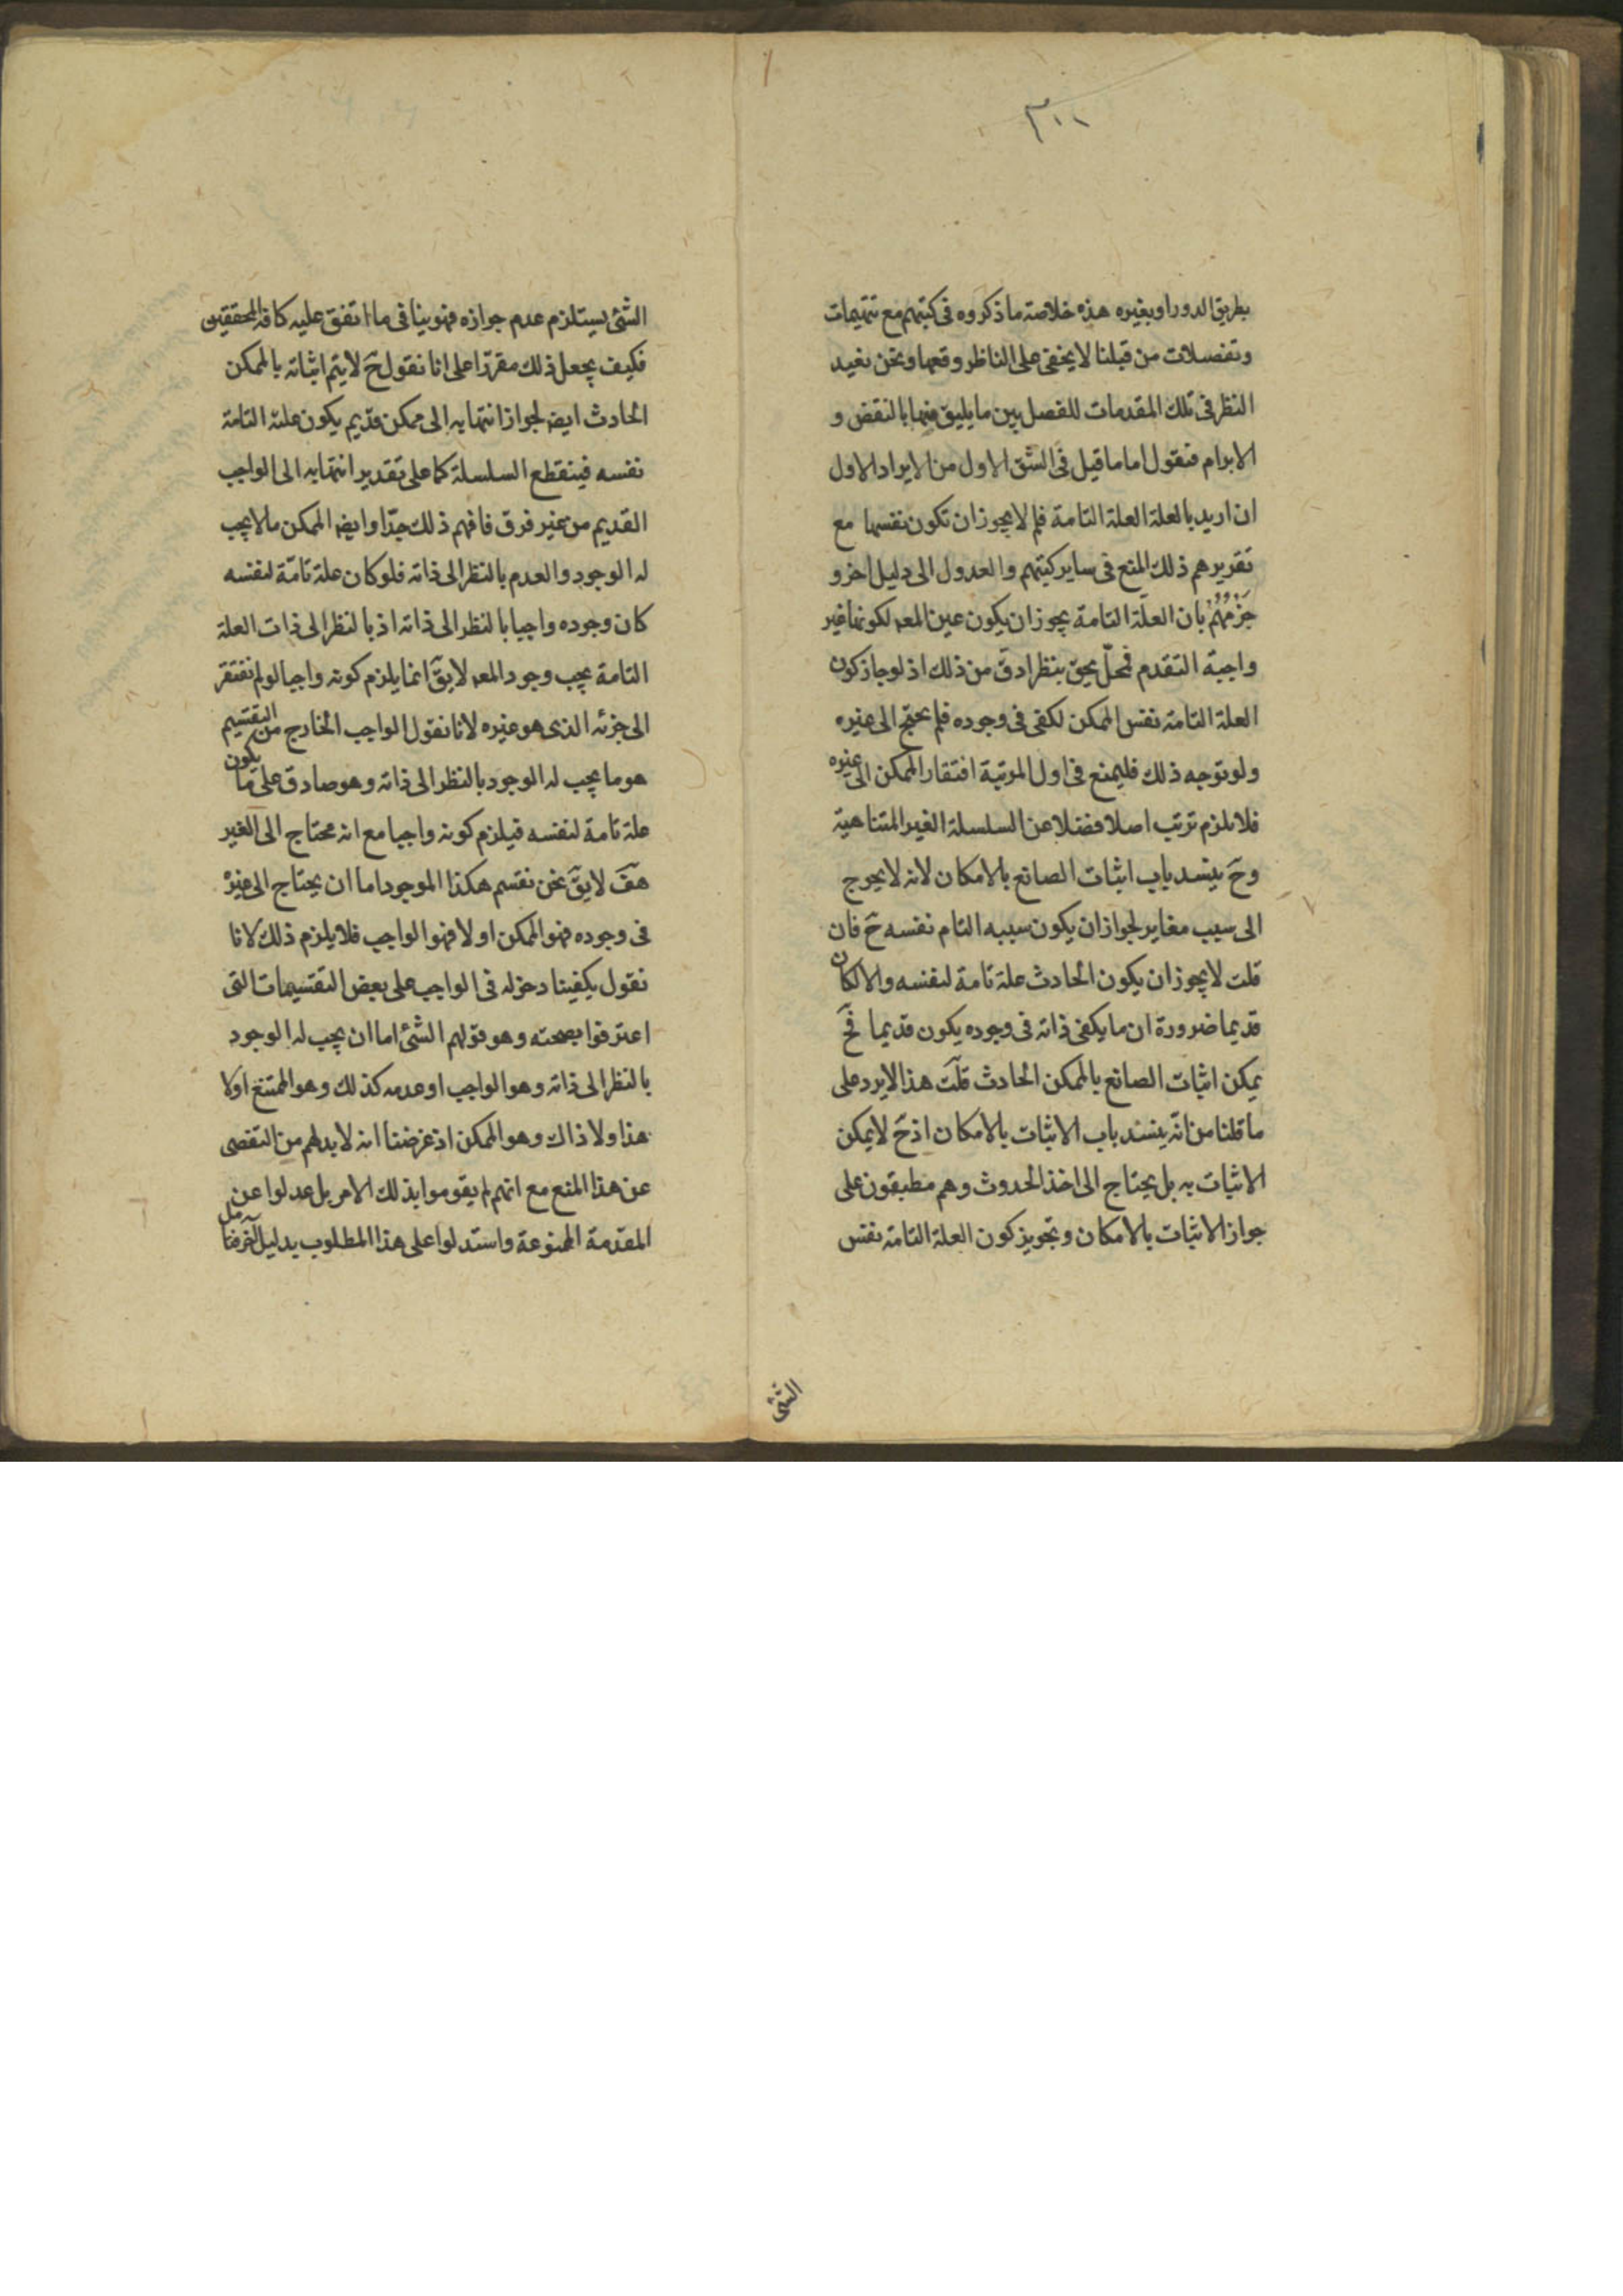 ٣٠٠
بطريق الدور او بغيره هذه خلاصة ما ذكروه فى كتبهم مع تتميمات
وتفصلات من قبلنا لا يخفى على الناظر وقعها ونحن نعيد
النظر فى تلك المقدمات للفصل بين ما يليق منها بالنقض و
الابرام فنقول اما ما قيل فى الشق الاول من الايراد الاول
ان اريد بالعلة العلة التامة فلم لا يجوز ان تكون نفسها مع
تقريرهم ذلك المنع فى ساير كتبهم والعدول الى دليل اخر و
جزمهم بان العلّة التامة يجوز ان يكون عين المعلو لكونها غير
واجبة التقدم فمحلّ يحق بنظر ادقّ من ذلك اذ لو جاز كون
العلة التامة نفس الممكن لكفى فى وجوده فلم يحتج الى غيره
ولو توجه ذلك فليمنع فى اول المرتبة افتقار الممكن الى غيره
فلا يلزم ترتب اصلا فضلا عن السلسلة الغير المتناهية
وحَ ينسد باب اثبات الصانع بالامكان لانه لا يحوج
الى سبب مغاير لجواز ان يكون سببه التام نفسه حَ فان
قلت لا يجوز ان يكون الحادث علة تامة لنفسه والا لكان
قديما ضرورة ان ما يكفى ذاته فى وجوده يكون قديما فحَ
يمكن اثبات الصانع بالممكن الحادث قلت هذا لا يرد على
ما قلنا من انّه ينسد باب الاثبات بالامكان اذ حَ لا يمكن
الاثبات به بل يحتاج الى اخذ الحدوث وهم مطبقون على
جواز الاثبات بالامكان وتجويز كون العلة التامة نفس
الشئ
الشئ يستلزم عدم جوازه فهو ينافى ما اتفق عليه كافة المحققين
فكيف يجعل ذلك مقررّا على انا نقول حَ لا يتم اثباته بالممكن
الحادث ايضا لجواز انتهايه الى ممكن قديم يكون علته التامة
نفسه فينقطع السلسلة كما على تقدير انتهايه الى الواجب
القديم من غير فرق فافهم ذلك جدّا وايضا الممكن ما لا يجب
له الوجود والعدم بالنظر الى ذاته فلو كان علة تامّة لنفسه
كان وجوده واجبا بالنظر الى ذاته اذ بالنظر الى ذات العلة
التامة يجب وجود المعلو لا يقَ انما يلزم كونه واجبا لو لم نفتقر
الى جزئه الذى هو غيره لانا نقول الواجب الخارج من التقسيم
هو ما يجب له الوجود بالنظر الى ذاته وهو صادق على ما يكون
علة تامة لنفسه فيلزم كونه واجبا مع انه محتاج الى الغير
هفَ لا يقَ نحن نقسم هكذا الموجود اما ان يحتاج الى غيره
فى وجوده فهو الممكن او لا فهو الواجب فلا يلزم ذلك لانا
نقول يكفينا دخوله فى الواجب على بعض التقسيمات التى
اعترفوا بصحته وهو قولهم الشئ اما ان يجب له الوجود
بالنظر الى ذاته وهو الواجب او عدمه كذلك وهو الممتنع او لا
هذا ولا ذاك وهو الممكن اذ غرضنا انه لا بد لهم من التفصى
عن هذا المنع مع انهم لم يقوموا بذلك الامر بل عدلوا عن
المقدمة الممنوعة واستدلوا على هذا المطلوب بدليل آخر فتامل